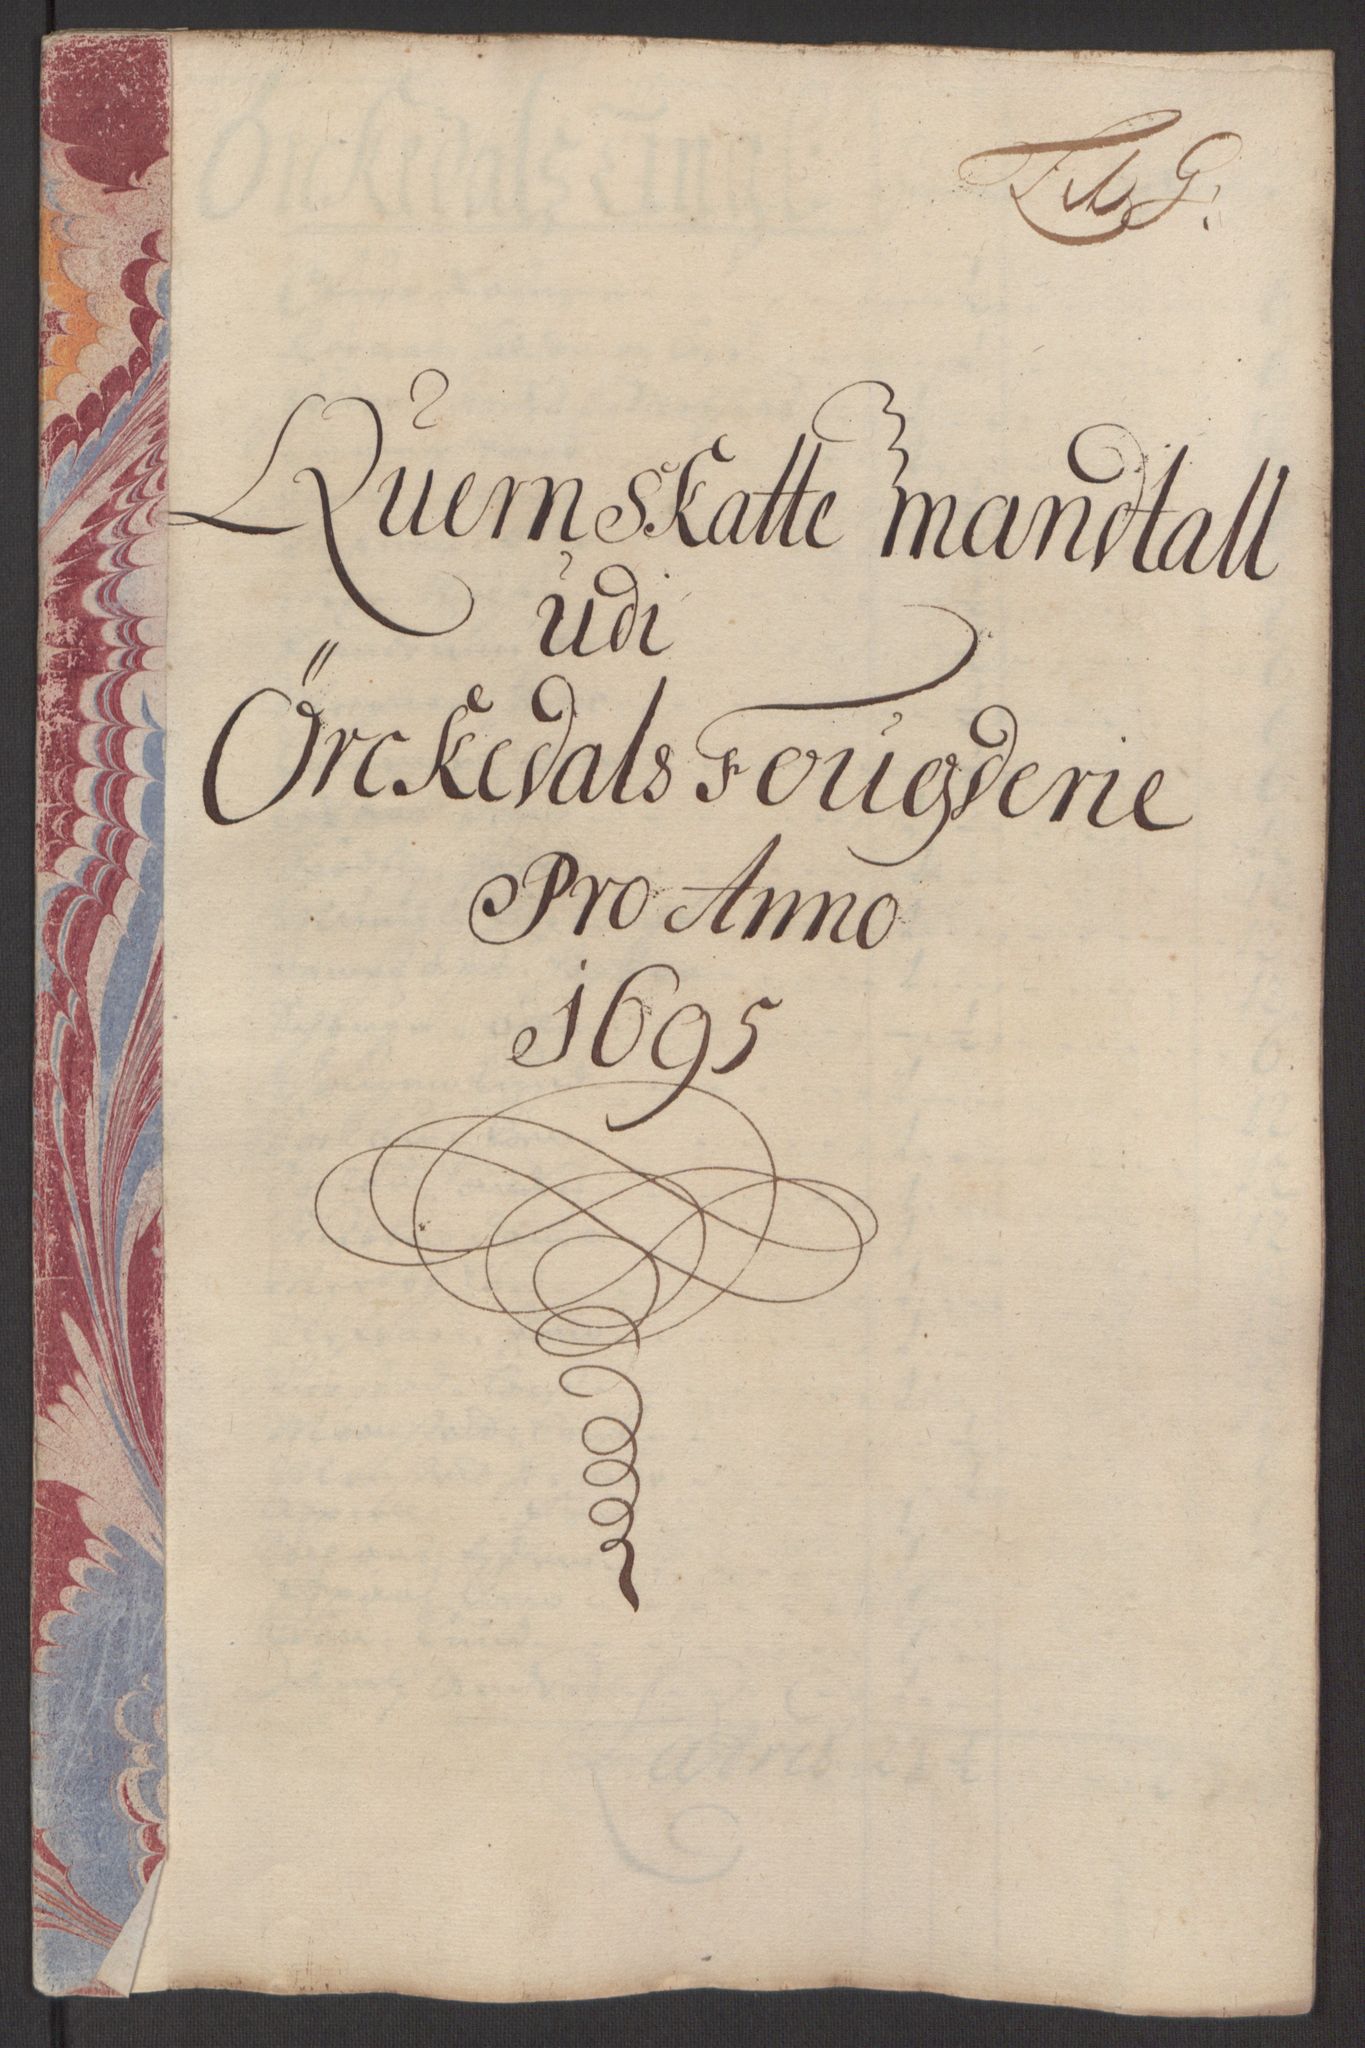 Lit G:
Quern Skatte mandtall
udi
Örckedals Fougderie
Pro Anno
1695